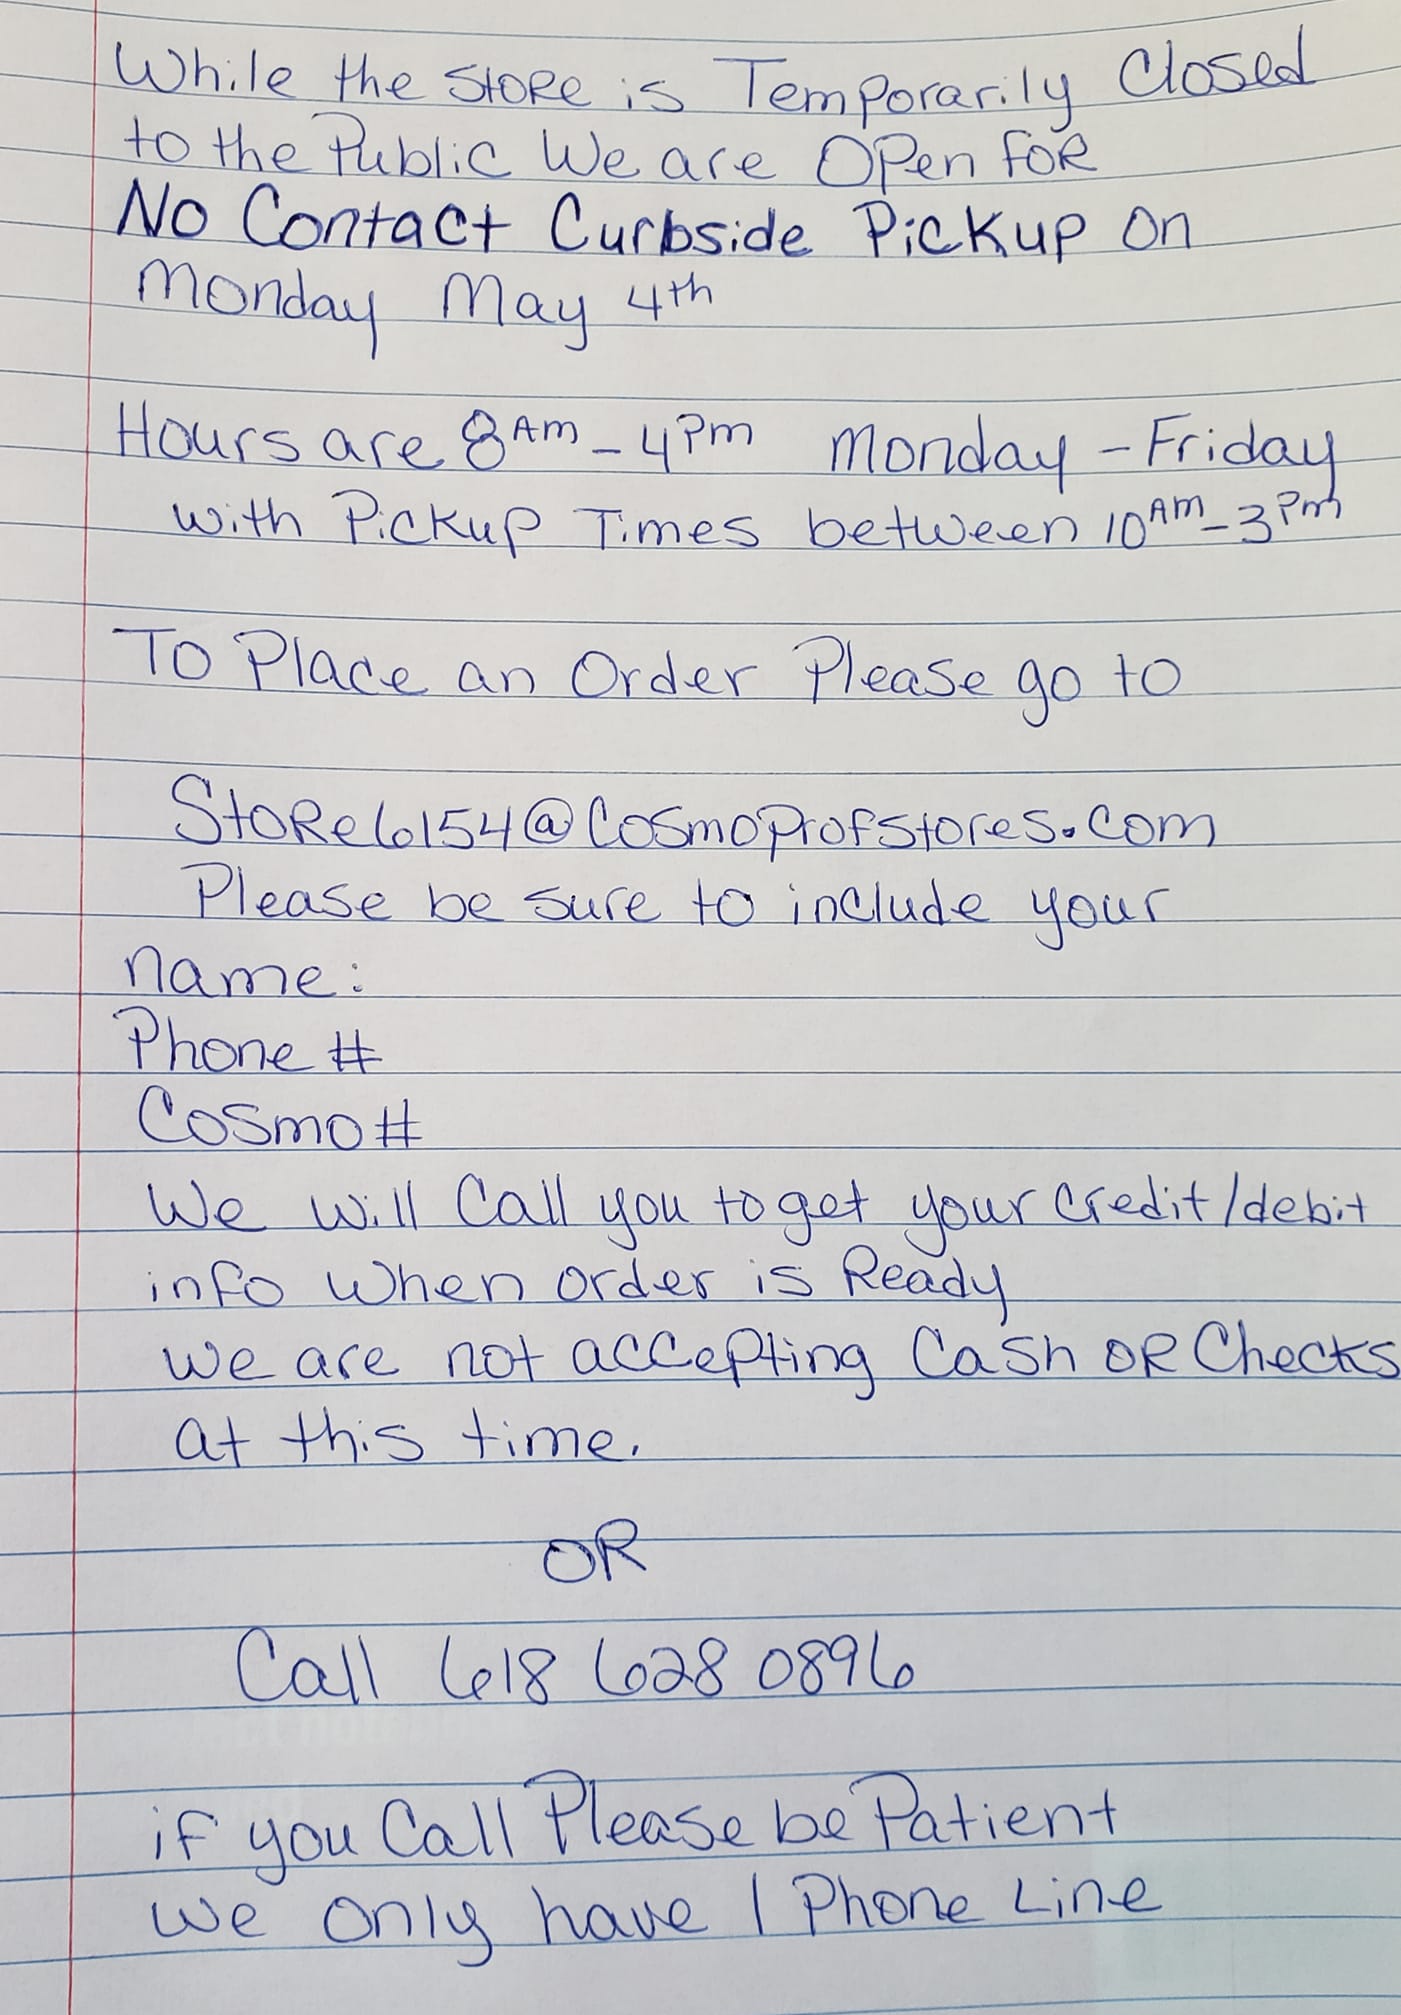 While the Store is Temporarily Closed
to the Public We are Open for
No Contact Curbside Pickup on
Monday May 4th
Hours are 8AM - 4PM Monday - Friday
with Pickup Times between 10AM - 3PM
To Place an Order Please go to
Store6154@Cosmoprofstores.com
Please be sure to include your
name:
Phone #
Cosmo #
We will Call you to get your credit/debit
info when order is Ready
we are not accepting Cash OR Checks
at this time.
OR
Call 618 628 0896
if you Call Please be Patient
we only have 1 Phone Line